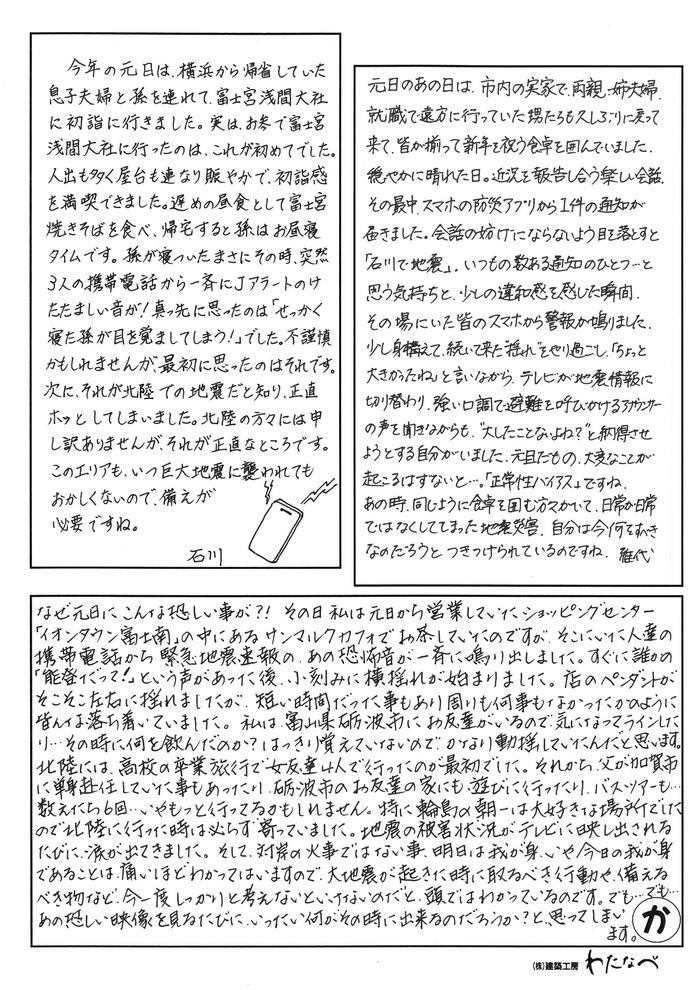 今年の元日は、横浜から帰省していた
息子夫婦と孫を連れて、富士宮浅間大社
に初詣に行きました。実は、お冬で富士宮
浅間大社に行ったのは、これが初めてでした。
人出も多く屋台も連なり賑やかで、初詣感
を満喫できました。遅めの昼食として富士宮
焼きそばを食べ、帰宅すると孫はお昼寝
タイムです。孫が寝ついたまさにその時、突然
3人の携帯電話から一斉にJアラートのけ
たたましい音が!真っ先に思ったのは「せっかく
寝た孫が目を覚ましてしまう!」でした。不謹慎
かもしれませんが、最初に思ったのはそれです。
次に、それが北陸での地震だと知り、正直
ホッとしてしまいました。北陸の方々には申
し訳ありませんが、それが正直なところです。
このエリアも、いつ巨大地震に襲われても
おかしくないので、備えが
必要ですね。
石川
元日のあの日は、市内の実家で、両親、姉夫婦、
就職で遠方に行っていた甥たちも久しぶりに戻って
来て、皆が揃って新年を祝う食卓を囲んでいました。
穏やかに晴れた日。近況を報告し合う楽しい会話。
その最中、スマホの防災アプリから1件の通知が
届きました。会話の妨げにならないよう目を落とすと
「石川で地震」。いつもの数ある通知のひとつ…と
思う気持ちと、少しの違和感を感じた瞬間、
その場にいた皆のスマホから警報が鳴りました。
少し身構えて、続いて来た"揺れ"をやり過ごし、「ちょっと
大きかったね」と言いながら、テレビが地震情報に
切り替わり、強い口調で避難を呼びかけるアナウンサー
の声を聞きながらも、"大したことないよね?"と納得させ
ようとする自分がいました。元旦だもの、大変なことが
起こるはずないと…。「正常性バイアス」ですね。
あの時、同じように食卓を囲む方々がいて、日常が日常
ではなくしてしまった地震災害。自分は今、何をすべき
なのだろうと つきつけられているのですね。 雅代
なぜ元日に こんな恐しい事が?! その日 私は元日から営業していた ショッピングセンター
「イオンタウン富士南」の中にある サンマルクカフェで お茶していたのですが、そこにいた人達の
携帯電話から 緊急地震速報の、あの恐怖音が一斉に鳴り出しました。すぐに誰かの
「能登だって!」という声があった後、小刻みに横揺れが始まりました。店のペンダントが
そこそこ左右に揺れましたが、短い時間だった事もあり周りも何事もなかったかのように
皆んな落ち着いていました。私は、富山県砺波市にお友達がいるので、気になってラインした
り…その時に何を飲んだのか?はっきり覚えていないので、かなり動揺していたんだと思います。
北陸には、高校の卒業旅行で女友達4人で行ったのが最初でした。それから、父が加賀市
に単身赴任していた事もあったり、砺波市のお友達の家にも遊びに行ったり、バスツアーも…
数えたら6回…いやもっと行ってるかもしれません。特に輪島の朝一は大好きな場所でした
ので北陸に行った時は必らず寄っていました。地震の被害状況がテレビに映し出される
たびに、涙が出てきました。そして、対岸の火事ではない事、明日は我が身、いや今日の我が身
であることは、痛いほどわかってはいますので、大地震が起きた時に取るべき行動や、備える
べき物など、今一度しっかりと考えないといけないのだと、頭ではわかっているのです。でも…でも…
あの恐しい映像を見るたびに、いったい何がその時に出来るのだろうか?と、思ってしまい
ます。 か
(株)建築工房 わたなべ